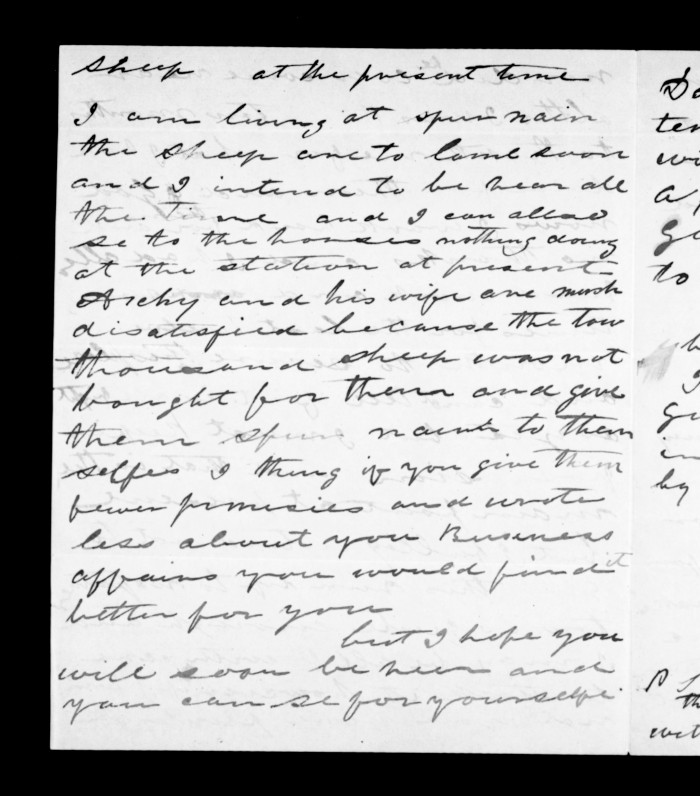 sheep at the present time
I am living at spur nain
the sheep are to lamb soon
and I intend to be hear all
the time and I can allso
se to the houses nothing doing
at the station at present
Archy and his wife are mush
disatisfied because the tow
thousand sheep was not
bought for them and give
them spur naint to them
selfes I thing if you give them
fewer promises and wrote
less about you Business
affairs you would find it
better for you
but I hope you
will soon be hear and
you can se for yourselfe
Do
ten
wi
to
by